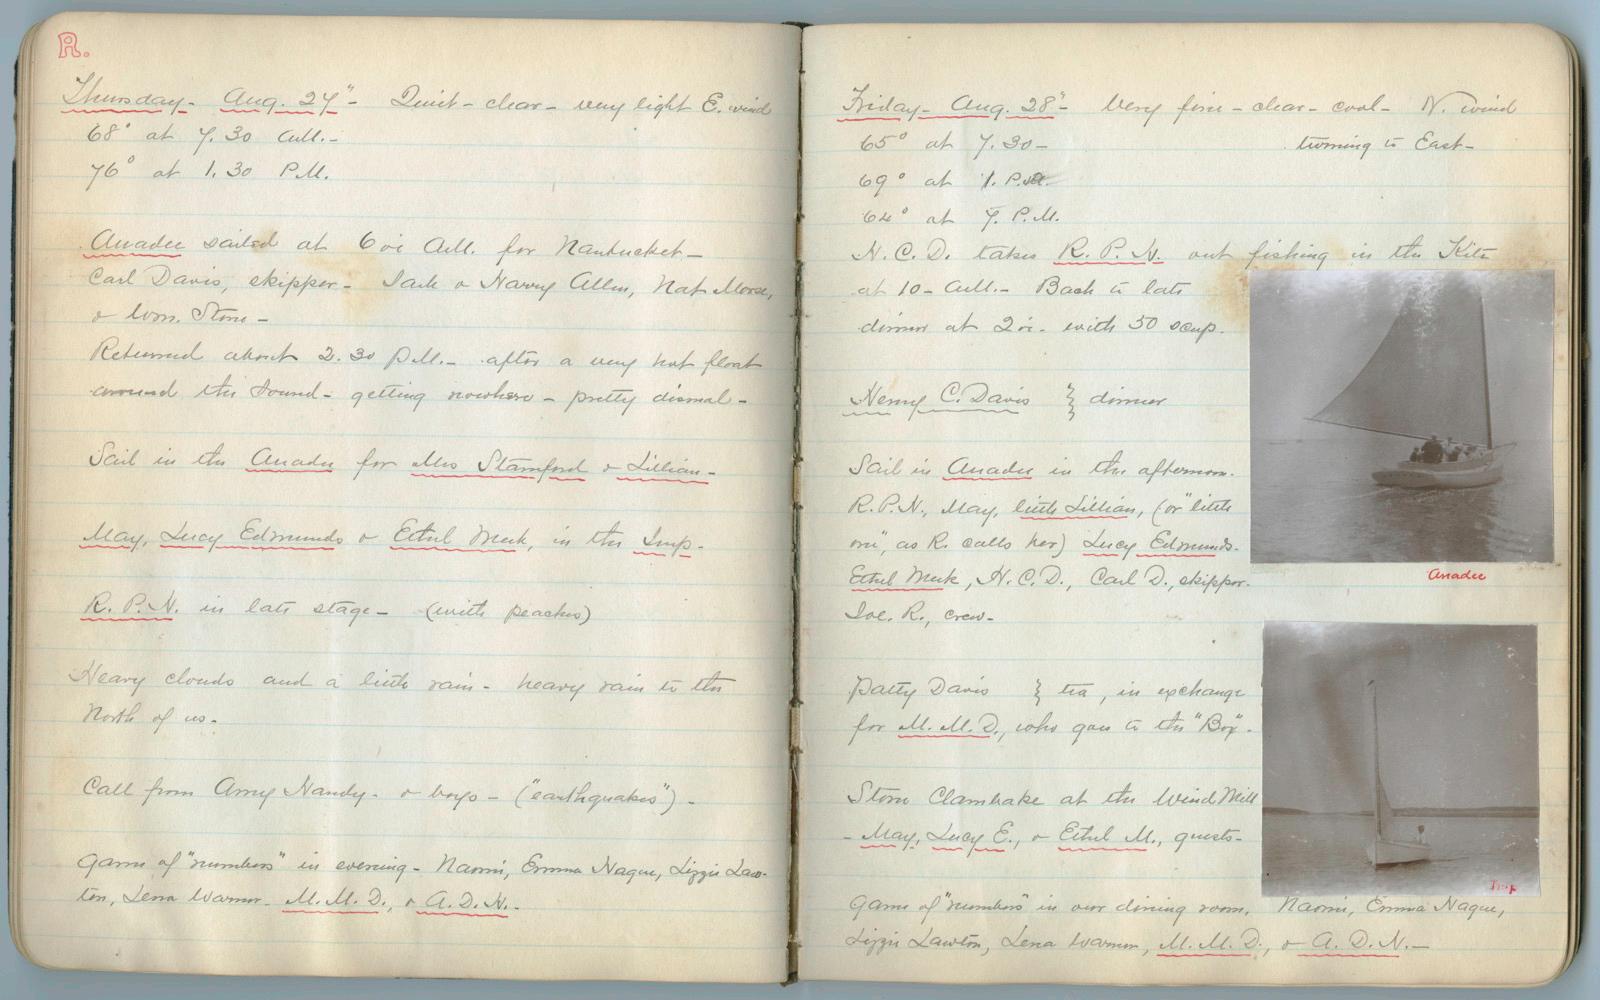 R.
Thursday - Aug. 27" - Quiet - clear - very light E. wind
68° at 7.30 A.M. -
76° at 1.30 P.M.
Anadee sailed at 6 A.M. for Nantucket -
Carl Davis, skipper - Jack & Harry Allen, Nat Morse,
& Wm. Stone -
Returned about 2.30 P.M. - after a very hot float
around the Sound - getting nowhere - pretty dismal -
Sail in the Anadee for Mrs Stamford & Lillian -
May, Lucy Edmunds & Ethel Meek, in the Imp. -
R. P. N. in late stage - (with peaches)
Heavy clouds and a little rain - heavy rain to the
North of us -
Call from Amy Handy - & boys - ("earthquakes") -
Game of "numbers" in evening - Naomi, Emma Hague, Lizzie Law-
ton, Lena Warner - M. M. D., & A. D. N. -
Friday - Aug. 28" - Very fine - clear - cool - N. wind
turning to East -
65° at 7.30 -
69° at 1. P.M.
64° at 7. P.M.
H. C. D. takes R. P. N. out fishing in the Kite
at 10 - A.M. - Back to late
dinner at 2 - with 50 scup.
Henry C. Davis } dinner
Sail in Anadee in the afternoon.
R.P.N., May, little Lillian, (or "little
one", as R. calls her) Lucy Edmunds.
Ethel Meek, H. C. D., Carl D., skipper.
Joe. R., crew -
Anadee
Patty Davis } tea, in exchange
for M. M. D., who goes to the "Box" -
Stone Clambake at the Wind Mill
- May, Lucy E., & Ethel M., guests -
Imp
Game of "numbers" in our dining room. Naomi, Emma Hague,
Lizzie Lawton, Lena Warner, M. M. D., & A. D. N. -